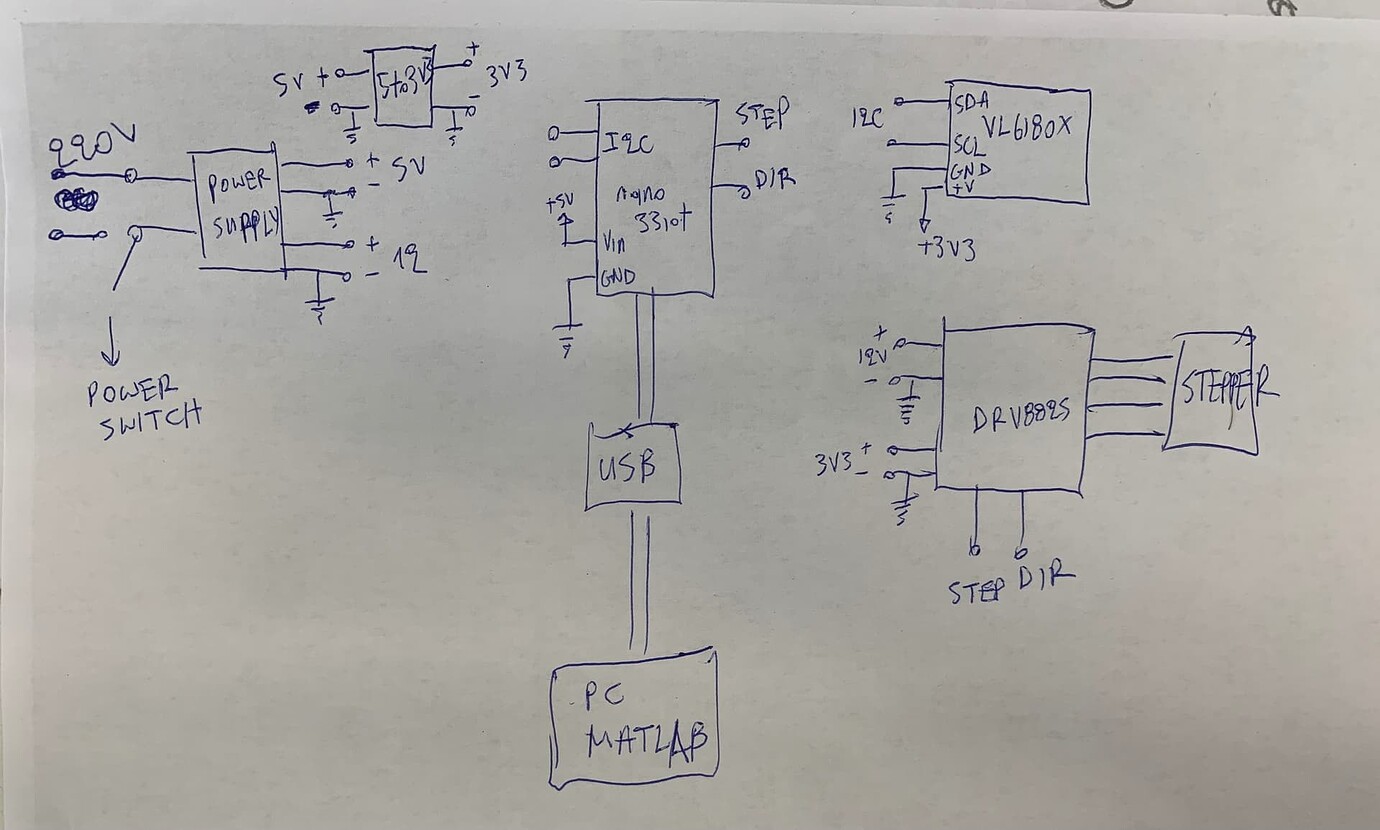 5V +
-
5to3V3
+
-
3V3
220V
POWER
SUPPLY
+ 5V
-
+ 12
-
POWER
SWITCH
I2C
nano
33iot
+5V
Vin
GND
STEP
DIR
USB
PC
MATLAB
I2C
SDA
VL6180X
SCL
GND
+V
+3V3
+
12V
-
3V3 +
-
DRV8825
STEPPER
STEP DIR